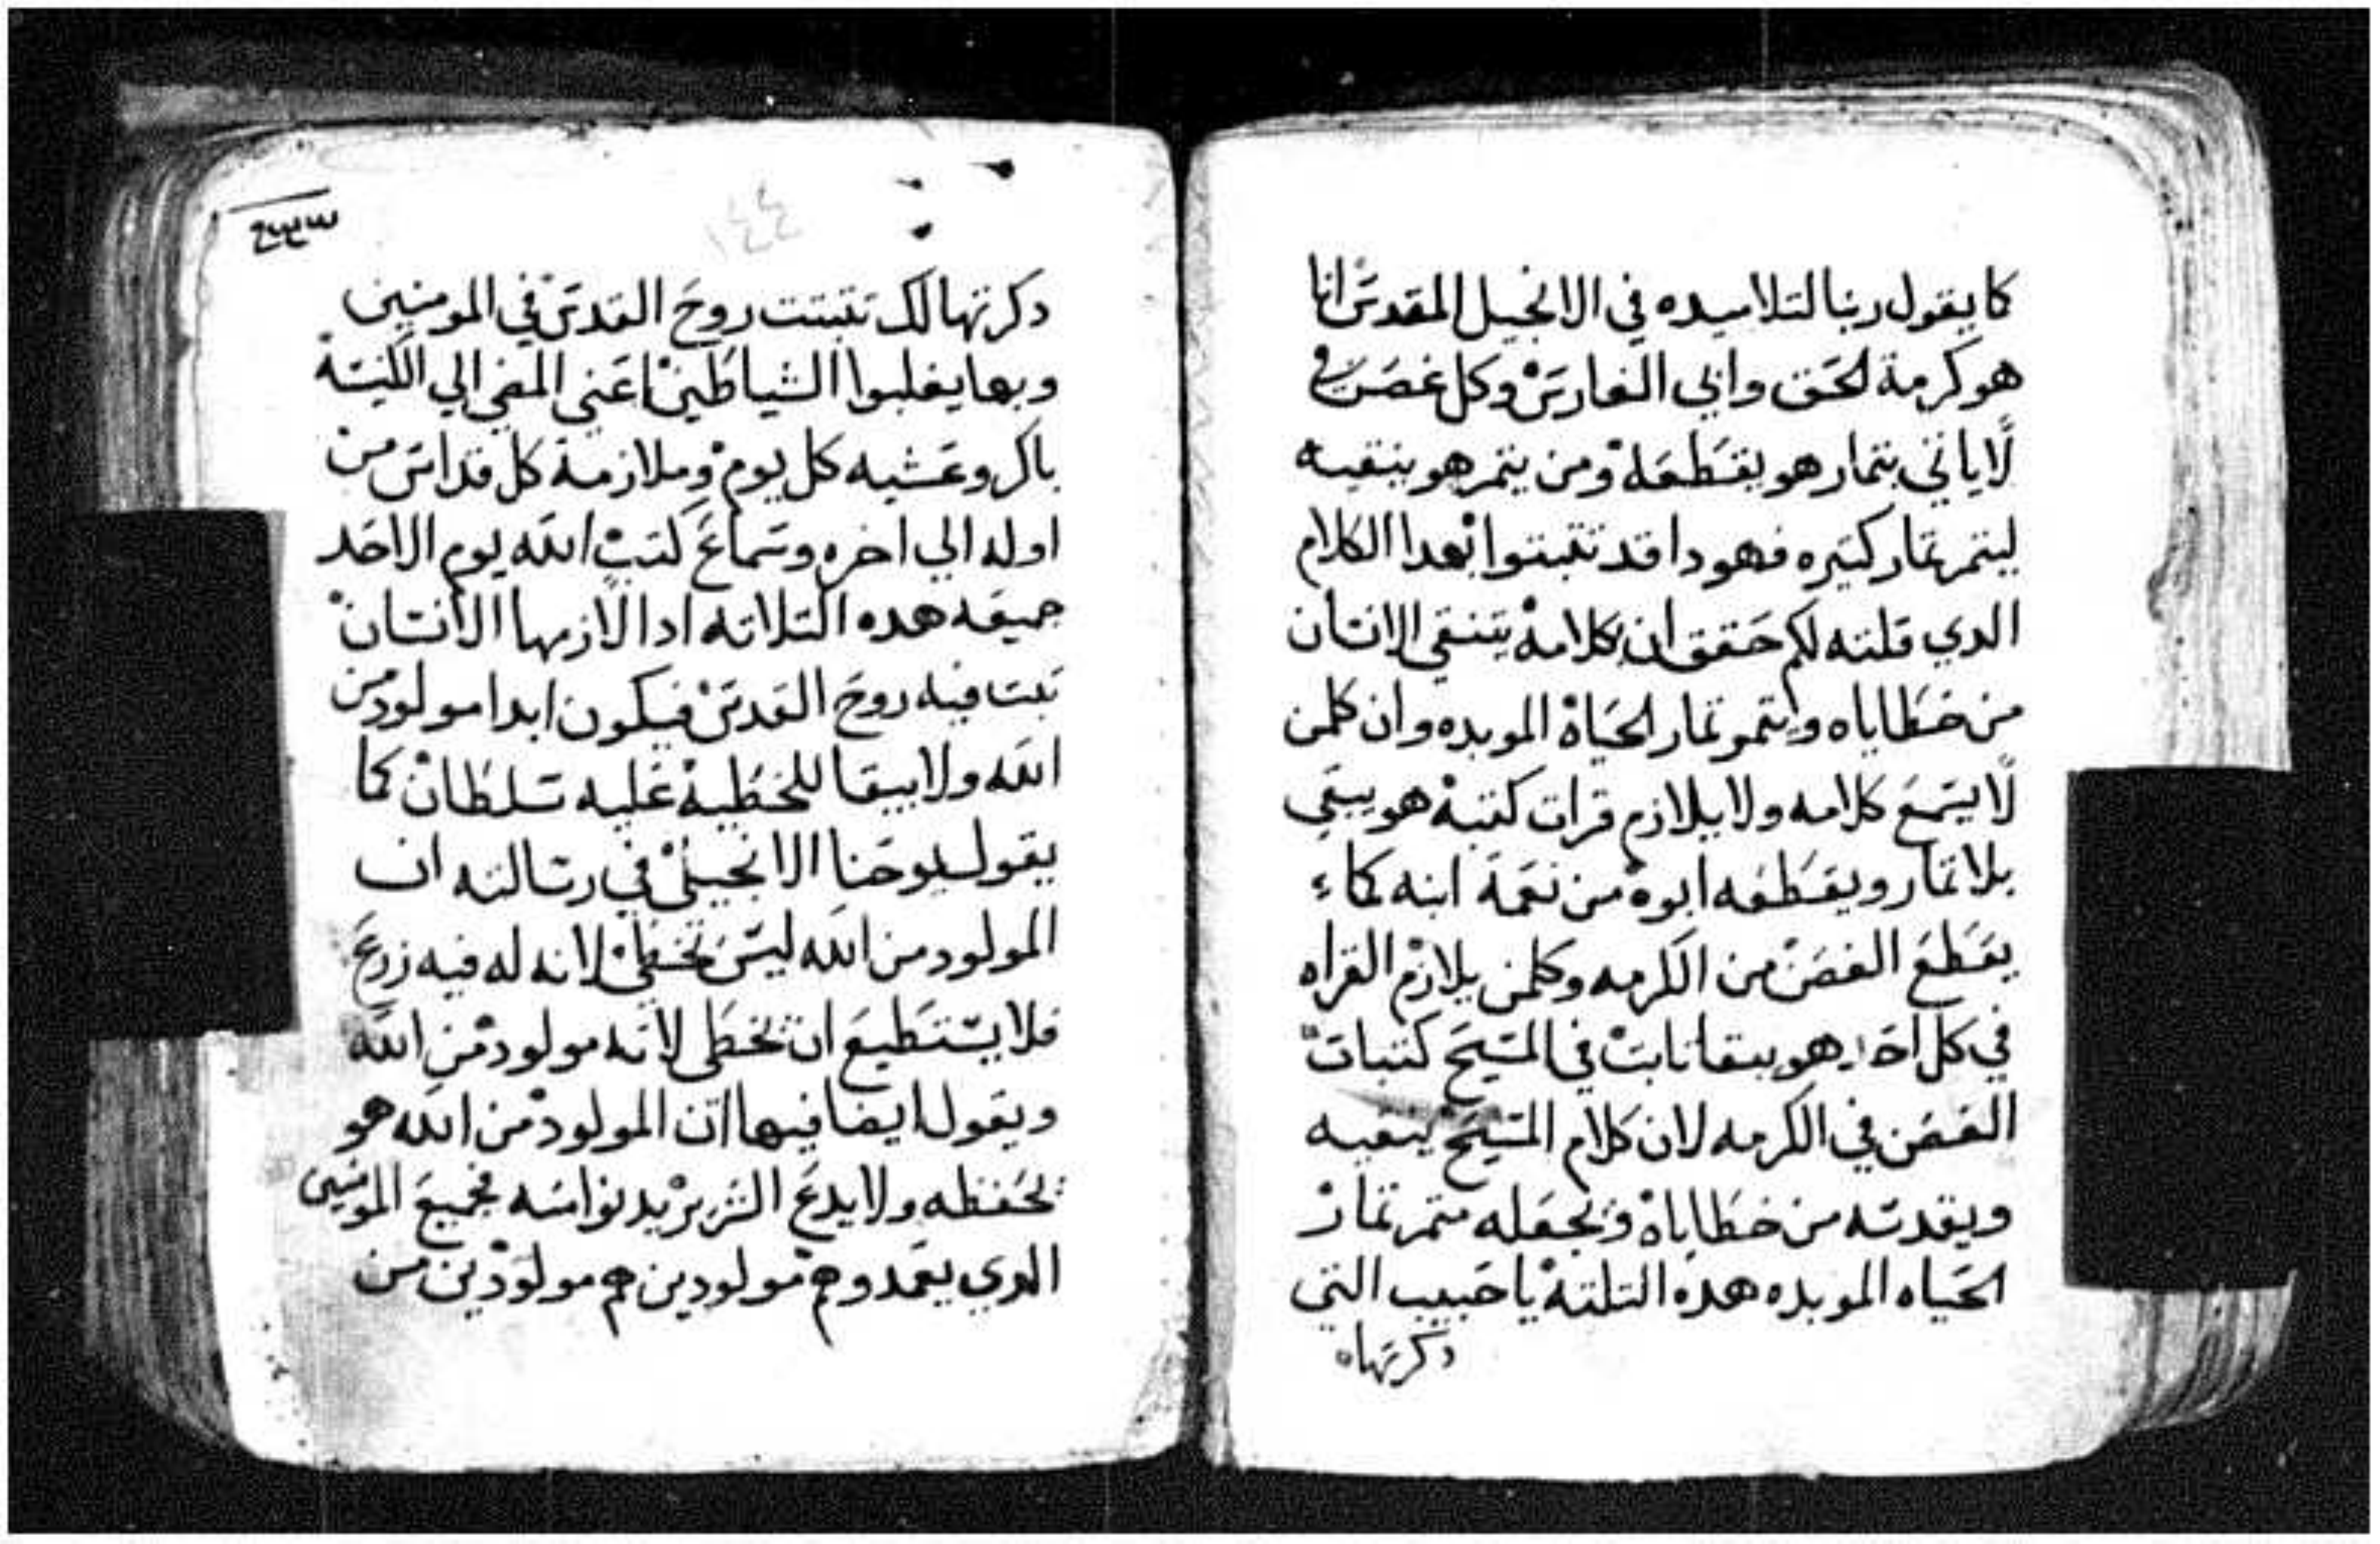 كما يقول ربنا لتلاميده في الانجيل المقدس انا
هو كرمة الحق وابي الغارس وكل غصن في
لا ياتي بتمار هو يقطعه ومن يتمر هو ينقيه
ليتمر تمار كتيره فهودا قد تتبتوا بهدا الكلام
الدي قلته لكم حقق ان بكلامه يتنقي الانسان
من خطاياه ويتمر تمار الحياة الموبده وان كلمن
لا يسمع كلامه ولا يلازم قرات كتبه هو يبقي
بلا تمار ويقطعه ابوه من نعمة ابنه كما
يقطع الغصن من الكرمه وكلمن يلازم القراه
في كل احد هو يبقا تابت في المسيح كتبات
الغصن في الكرمه لان كلام المسيح ينقيه
ويقدسه من خطاياه ويجعله متمر تمار
الحياه الموبده هده التلته يا حبيب التي
دكرتها
١٤٤
دكرتها لك تتبتت روح القدس في المومنين
وبها يغلبوا الشياطين اعني المضي الي الكنيسة
باكر وعشيه كل يوم وملازمة كل قداس من
اوله الي اخره وسماع كتب الله يوم الاحد
جميعه هده التلاته ادا لازمها الانسان
تبت فيه روح القدس فيكون ابدا مولود من
الله ولا يبقا للخطية عليه سلطان كما
يقول يوحنا الانجيلي في رسالته ان
المولود من الله ليس يخطي لانه له فيه زرع
فلا يستطيع ان يخطي لانه مولود من الله
ويقول ايضا فيها ان المولود من الله هو
يحفظه ولا يدع الشرير يد نوامسه فجميع المومنين
الدي يعمدوهم مولودين هم مولودين من